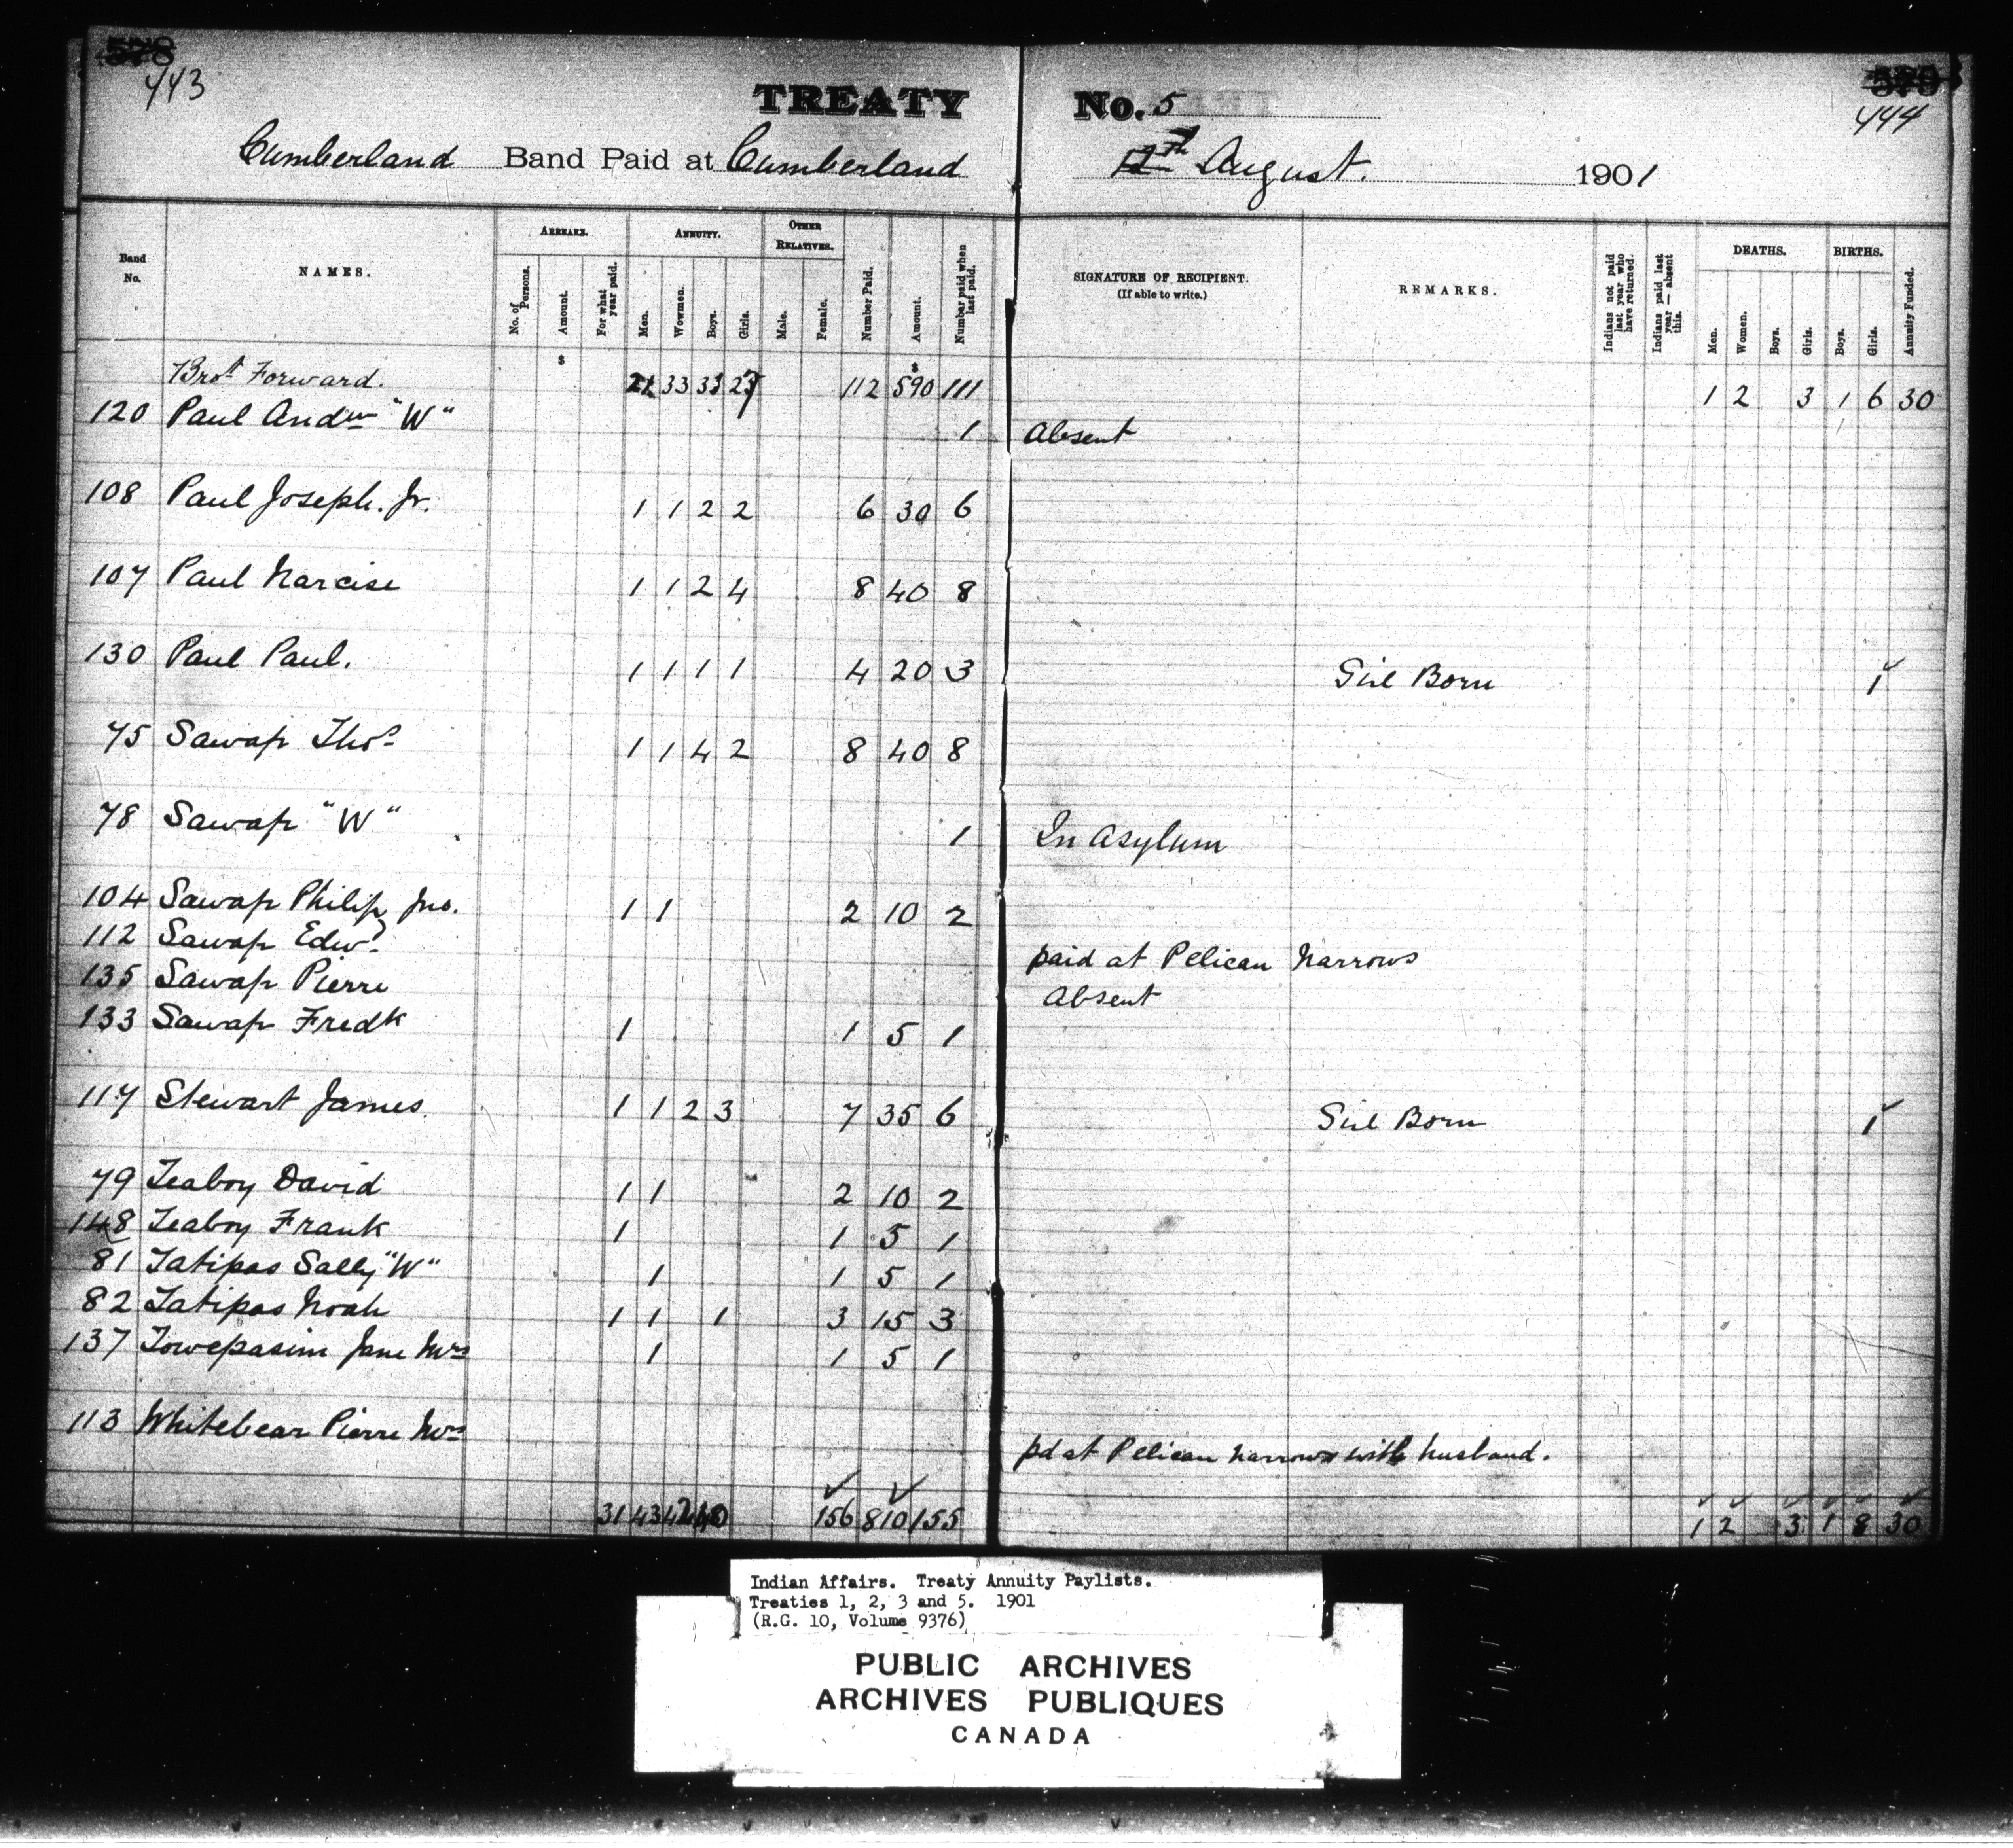 578
443
579
444
TREATY No. 5
Cumberland Band Paid at Cumberland 12th August. 1901
Band No.
NAMES.
ARREARS.
No. of Persons.
Amount.
For what year paid.
ANNUITY.
Men.
Women.
Boys.
Girls.
OTHER RELATIVES.
Male.
Female.
Number Paid.
Amount.
Number paid when last paid.
SIGNATURE OF RECIPIENT.
(If able to write.)
REMARKS.
Indians not paid last year who have returned.
Indians paid last year — absent this.
DEATHS.
Men.
Women.
Boys.
Girls.
BIRTHS.
Boys.
Girls.
Annuity Funded.
$ $
Brot Forward. 33 33 27 112 590 111 1 2 3 1 6 30
120 Paul Andw "W" 1 Absent
108 Paul Joseph. Jr. 1 1 2 2 6 30 6
107 Paul Narcise 1 1 2 4 8 40 8
130 Paul Paul. 1 1 1 1 4 20 3 Girl Born 1
75 Sawap Thos 1 1 4 2 8 40 8
78 Sawap "W" 1 In Asylum
104 Sawap Philip Jno. 1 1 2 10 2
112 Sawap Edwd paid at Pelican Narrows
135 Sawap Pierre Absent
133 Sawap Fredk 1 1 5 1
117 Stewart James. 1 1 2 3 7 35 6 Girl Born 1
79 Teaboy David 1 1 2 10 2
148 Teaboy Frank 1 1 5 1
81 Tatipas Sally "W" 1 1 5 1
82 Tatipas Noah 1 1 1 3 15 3
137 Towepasim Jane Mrs 1 1 5 1
113 Whitebear Pierre Mrs pd at Pelican Narrows with husband.
31 43 42 40 156 810 155 1 2 3 1 8 30
Indian Affairs. Treaty Annuity Paylists.
Treaties 1, 2, 3 and 5. 1901
(R.G. 10, Volume 9376)
PUBLIC ARCHIVES
ARCHIVES PUBLIQUES
CANADA